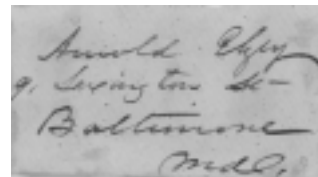 Arnold Elzey
9. Lexington St
Baltimore
Md.